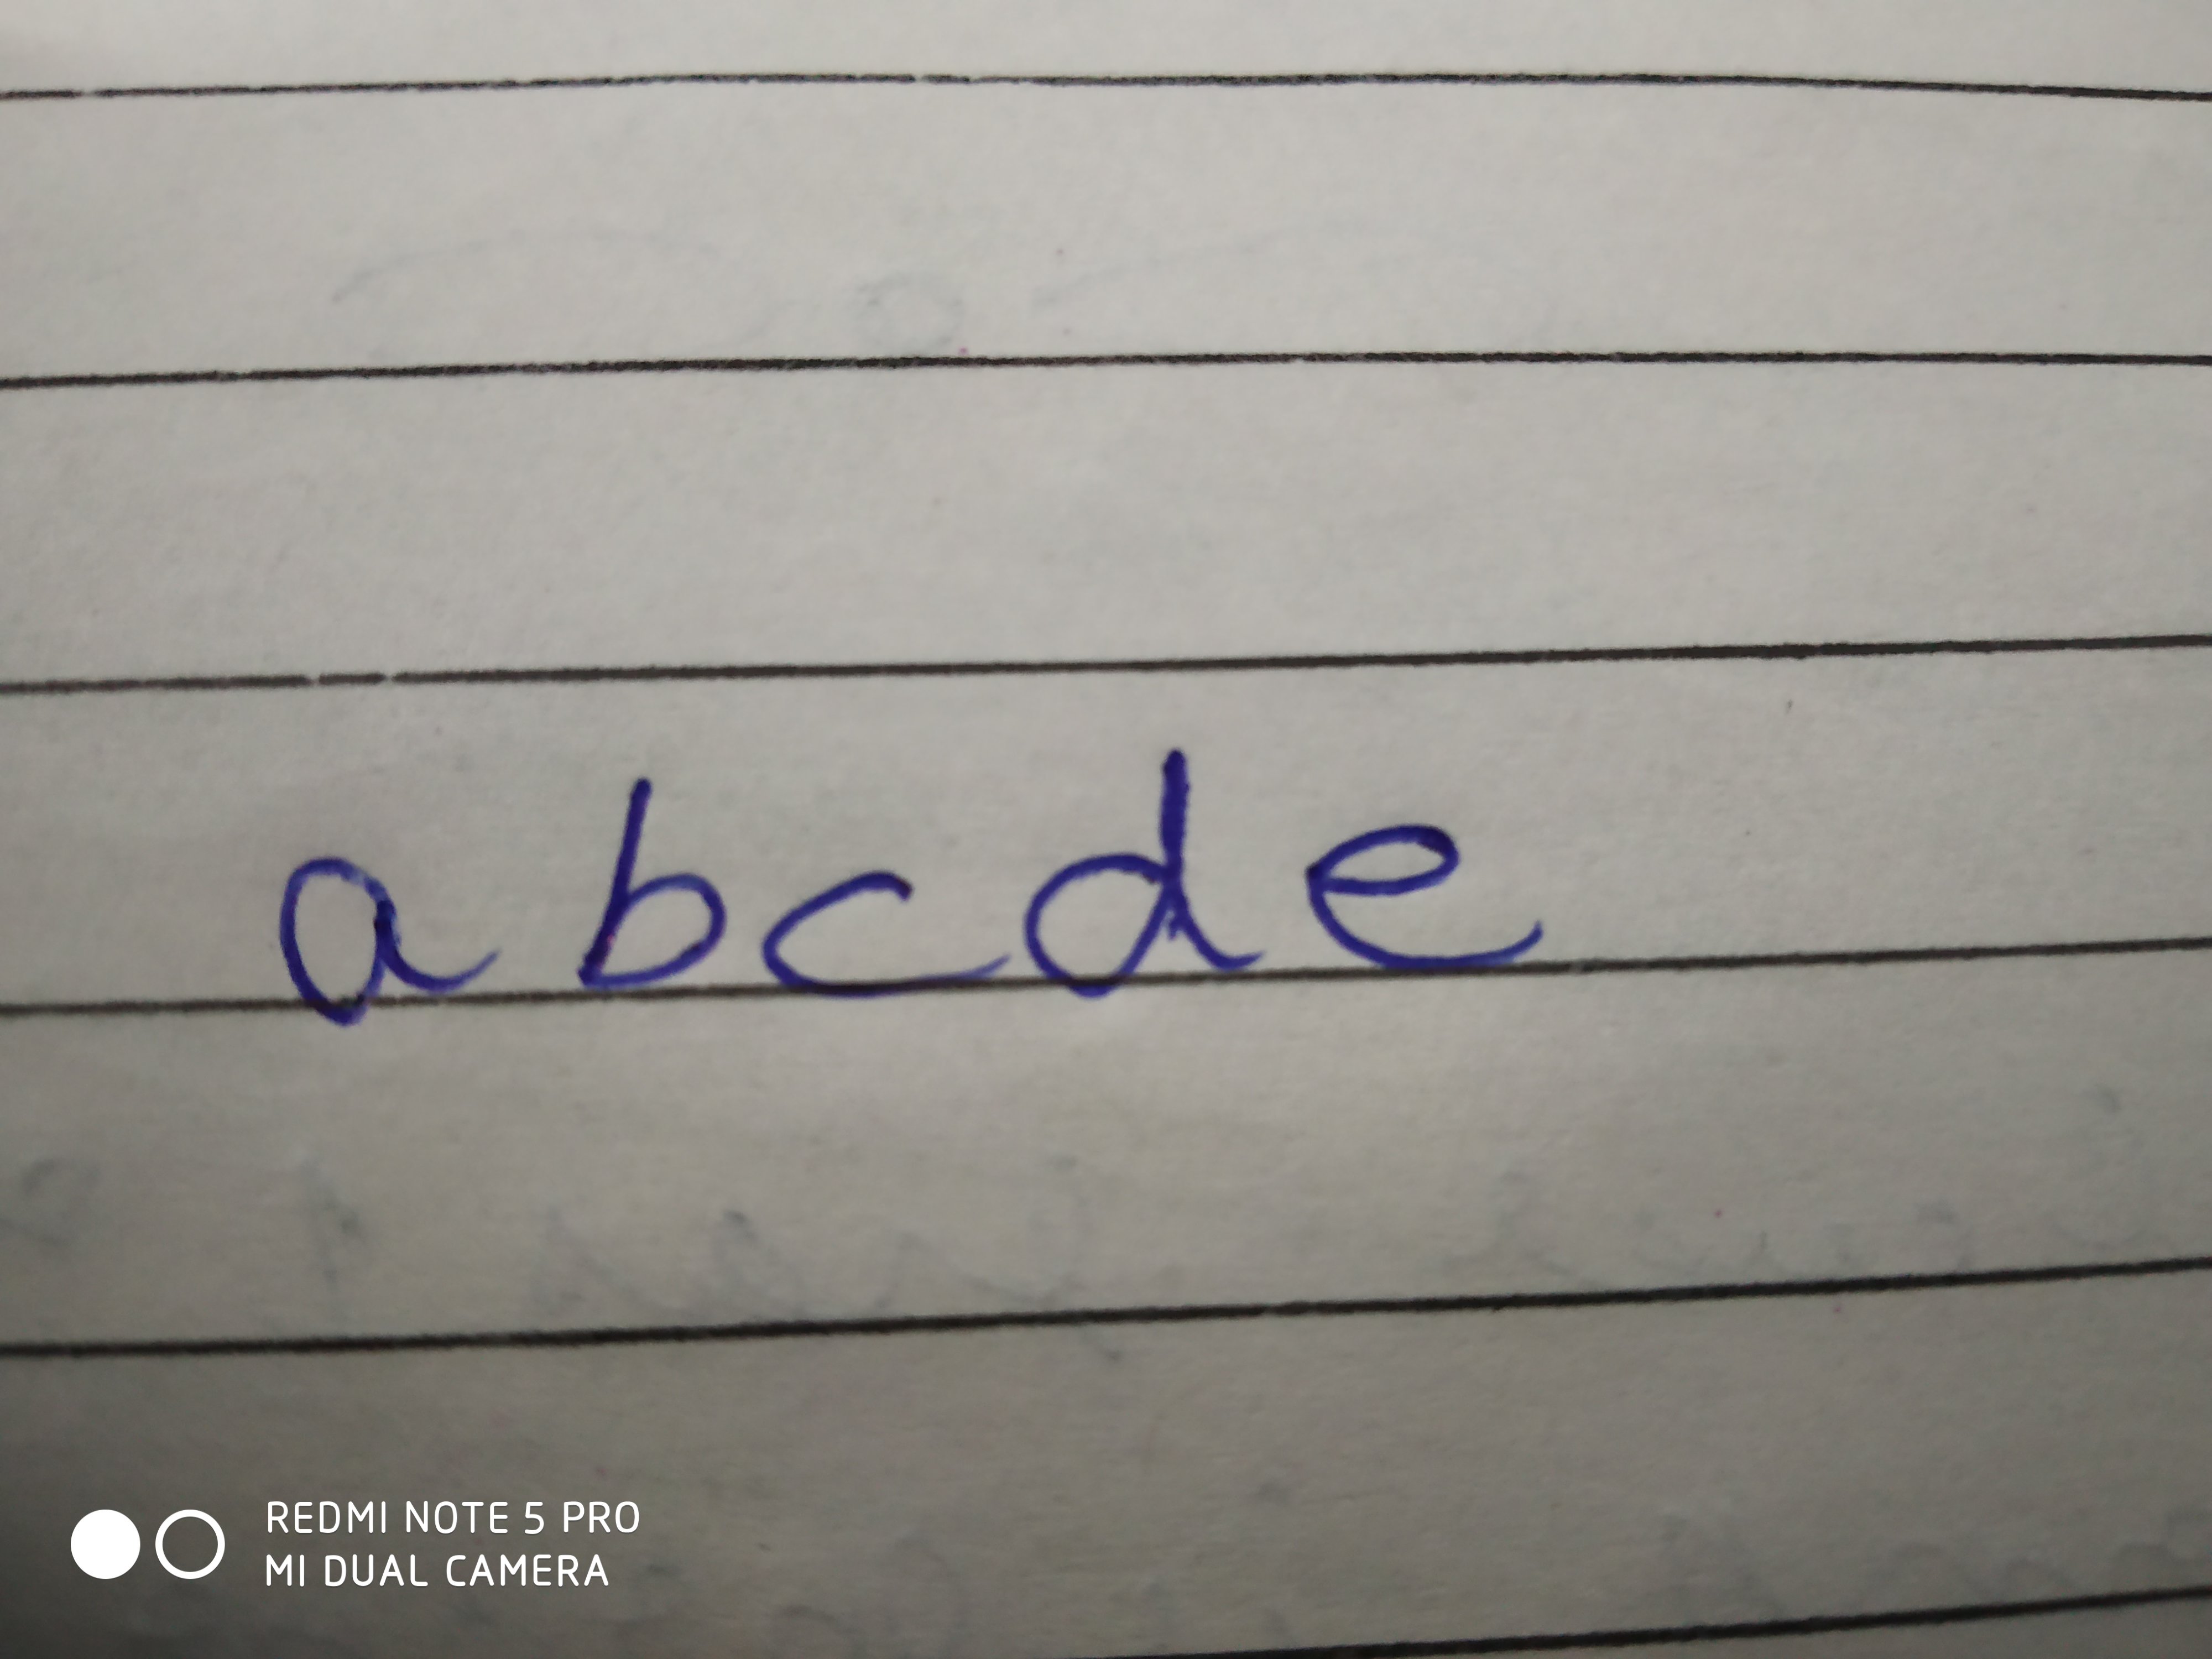 a b c d e
REDMI NOTE 5 PRO
MI DUAL CAMERA